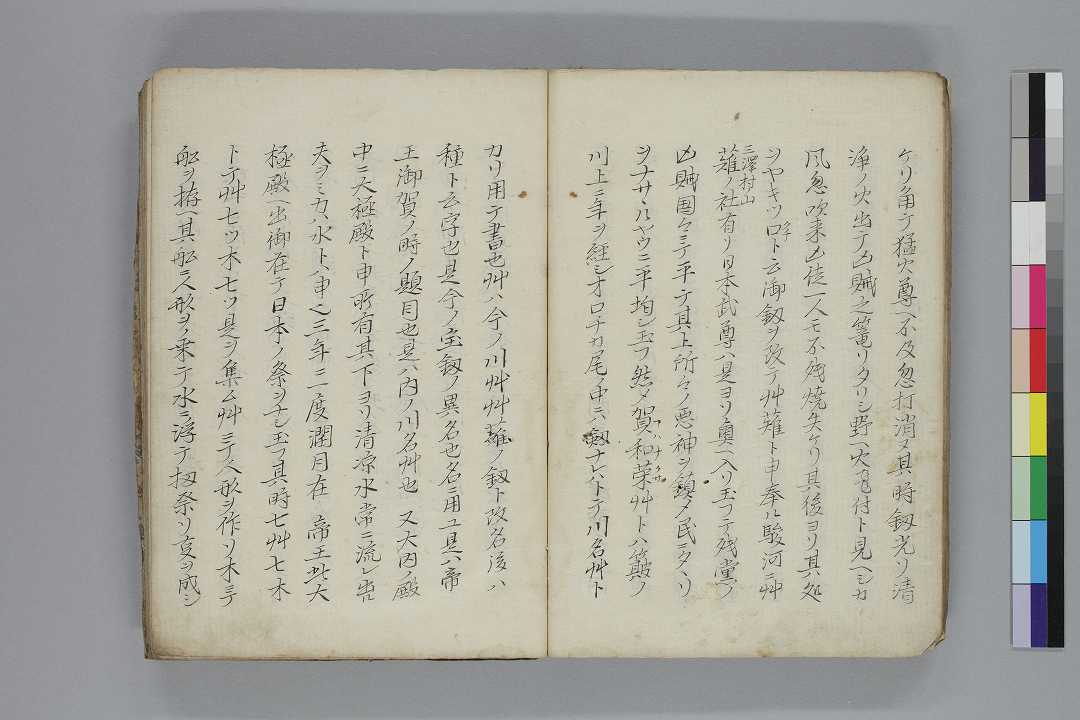 ケリ角テ猛火尊ヘ不及忽打消ヌ其時釼光リ清
浄ノ火出テ凶賊之篭リタリシ野ヘ火飛付ト見ヘシカ
風忽吹来凶徒一人モ不残焼失ケリ其後ヨリ其処
ヲヤキツロト云御釼ヲ改テ艸薙ト申奉ル駿河ニ艸
三澤村山
薙ノ社有リ日本武尊ハ是ヨリ奥ヘ入リ玉フテ残党ノ
凶賊国々ミテ平テ其上所々ノ悪神ヲ鎮メ民ニタヽリ
ヲナサヽルヤウニ平均シ玉フ然メ賀和菜艸トハ簸ノ
川上ニ年ヲ経シオロチカ尾ノ中ニ釼ナレハトテ川名艸ト
カリ用テ書也艸ハ今ノ川艸艸薙ノ釼ト改名後ハ
種ト云字也是今ノ宝釼ノ異名也名ニ用ユ具ハ帝
王御賀ノ時ノ題目也是ハ内ノ川名艸也 又大内ノ殿
中ニ大極殿ト申所有其下ヨリ清凉水常ニ流レ出
夫ヲミカハ水トハ申也三年ニ二度潤月在 帝王此大
極殿ヘ出御在テ日本ノ祭ヲナシ玉フ其時七艸七木
トテ艸七ツ木七ツ是ヲ集ム艸ニテ人形ヲ作リ木ニテ
舩ヲ拵ヘ其舩ニ人形ヲノ乗テ水ニ浮テ扨祭リ莫ヲ成シ